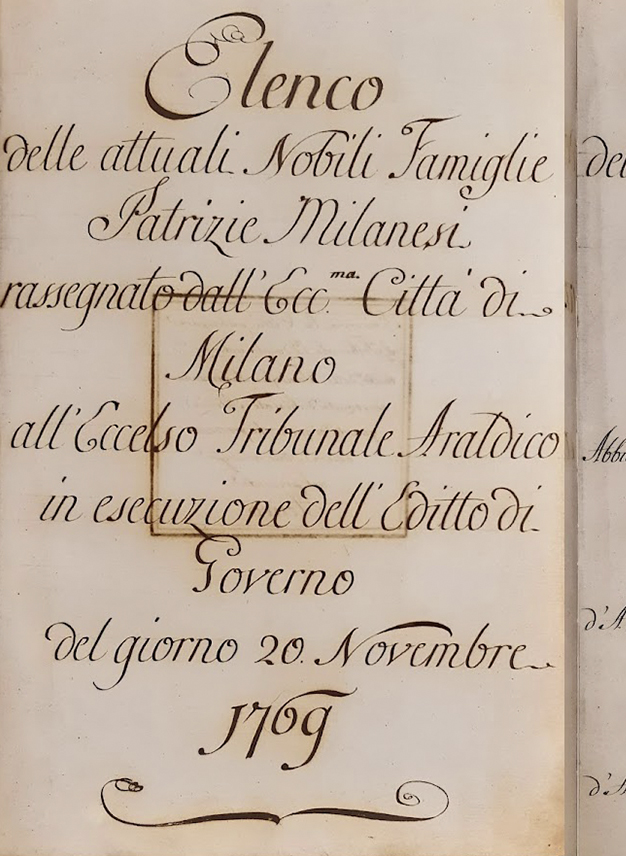 Elenco
delle attuali Nobili Famiglie
Patrizie Milanesi
rassegnato dall' Ecc.ma Città di
Milano
all' Eccelso Tribunale Araldico
in esecuzione dell' Editto di
Governo
del giorno 20. Novembre
1769